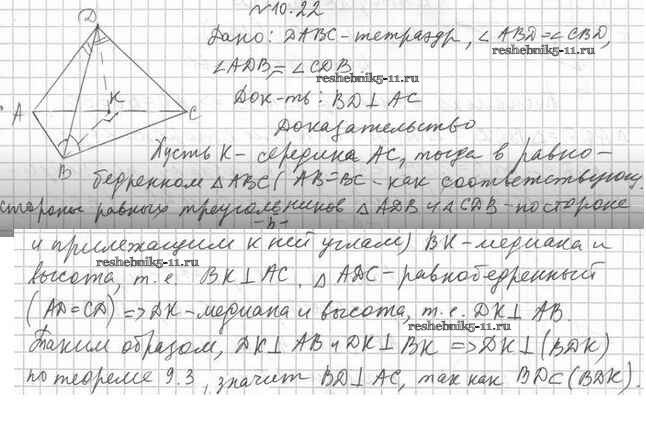 №10.22
D
Дано: DABC - тетраэдр, ∠ABD=∠CBD,
reshebnik5-11.ru
∠ADB=∠CDB.
reshebnik5-11.ru
Док-ть: BD⊥AC
A
K
C
B
Доказательство
Пусть K - середина AC, тогда в равно-
бедренном △ABC (AB=BC - как соответствующ.
стороны равных треугольников △ADB и △CDB - по стороне
и прилежащим к ней углам) BK - медиана и
reshebnik5-11.ru
высота, т.е. BK⊥AC. △ADC - равнобедренный
(AD=CD) => DK - медиана и высота, т.е. DK⊥AB.
reshebnik5-11.ru
Таким образом, DK⊥AB и DK⊥BK => DK⊥(BDK)
по теореме 9.3, значит BD⊥AC, так как BD⊂(BDK).